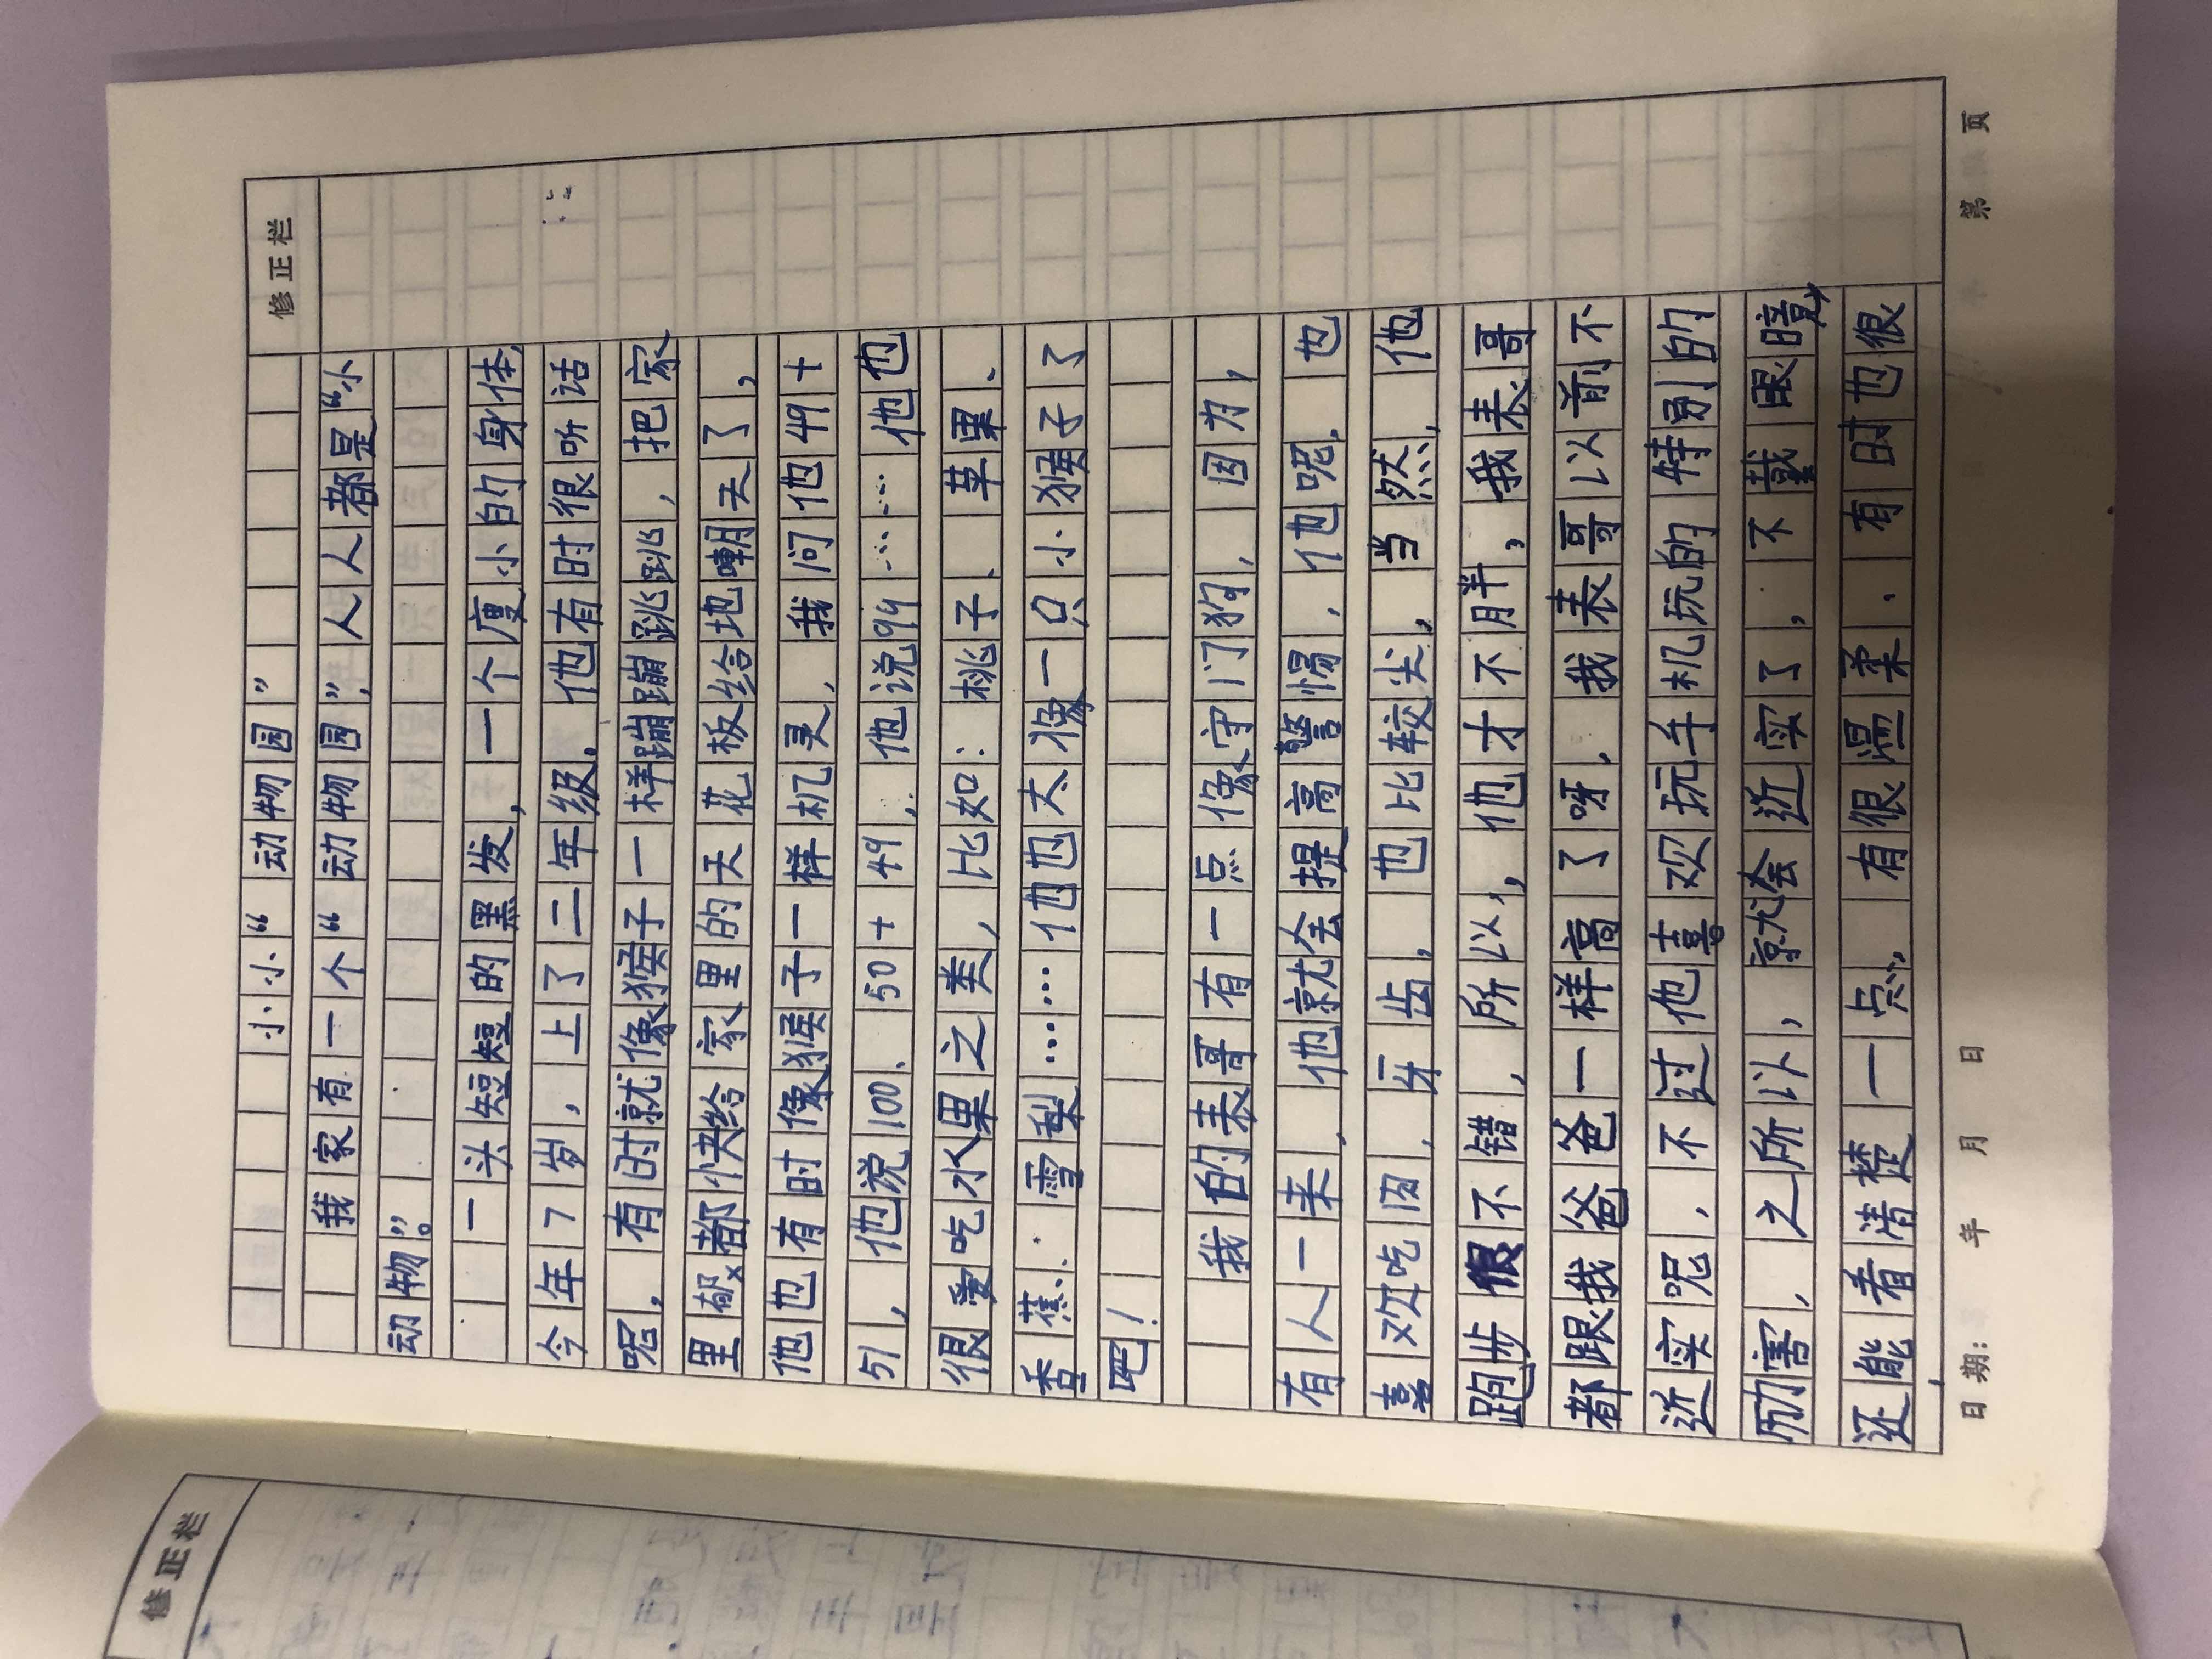 修正栏
小小“动物园”
我家有一个“动物园”,人人都是“小
动物”。
一头短短的黑发,一个瘦小的身体,
今年7岁,上了二年级。他有时很听话
呢,有时就像猴子一样蹦蹦跳跳,把家
里都快给家里的天花板给地嘲天了,
他也有时像猴子一样机灵,我问他49+
51,他说100、50+49,他说99……他也
很爱吃水果之类,比如:桃子、苹果、
香蕉、雪梨……他也太像一只小猴子了
吧!
我的表哥有一点像守门狗,因为,
有人一来,他就会提高警惕,他呢,也
喜欢吃肉,牙齿,也比较尖,当然,他
跑步很不错,所以,他才不胖,我表哥
都跟我爸爸一样高了呀,我表哥以前不
近实呢,不过他喜欢玩手机玩的特别的
历害,之所以,就会近实了,不戴眼睛,
还能看清楚一点,有很温柔、有时也很
日期: 年 月 日
第 页
修正栏